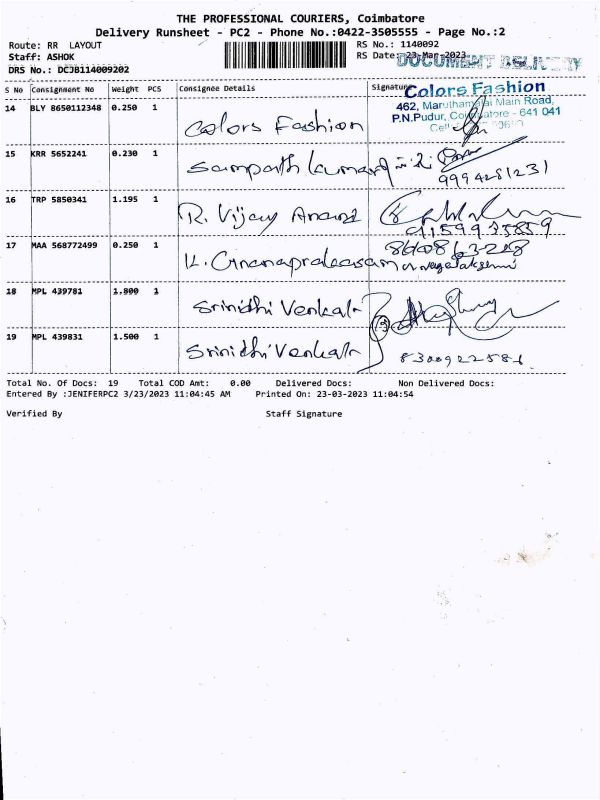 THE PROFESSIONAL COURIERS, Coimbatore
Delivery Runsheet - PC2 - Phone No.:0422-3505555 - Page No.:2
Route: RR LAYOUT
RS No.: 1140092
Staff: ASHOK
RS Date :23-Mar-2023
DOCUMENT DELIVERY
DRS No.: DCJB114009202
S No Consignment No Weight PCS Consignee Details Signature
Colors Fashion
462, Maruthamalai Main Road,
P.N.Pudur, Coimbatore - 641 041
Cell
14 BLY 8650112348 0.250 1 Colors Fashion
15 KRR 5652241 0.230 1 Sampath kumar
9994281231
16 TRP 5850341 1.195 1 R. Vijay Anand
9159935859
17 MAA 568772499 0.250 1 K. Gnanaprakasam
18 MPL 439781 1.800 1 Srinidhi Venkat
19 MPL 439831 1.500 1 Srinidhi Venkat
8300922581
Total No. Of Docs: 19 Total COD Amt: 0.00 Delivered Docs: Non Delivered Docs:
Entered By :JENIFERPC2 3/23/2023 11:04:45 AM Printed On: 23-03-2023 11:04:54
Verified By Staff Signature